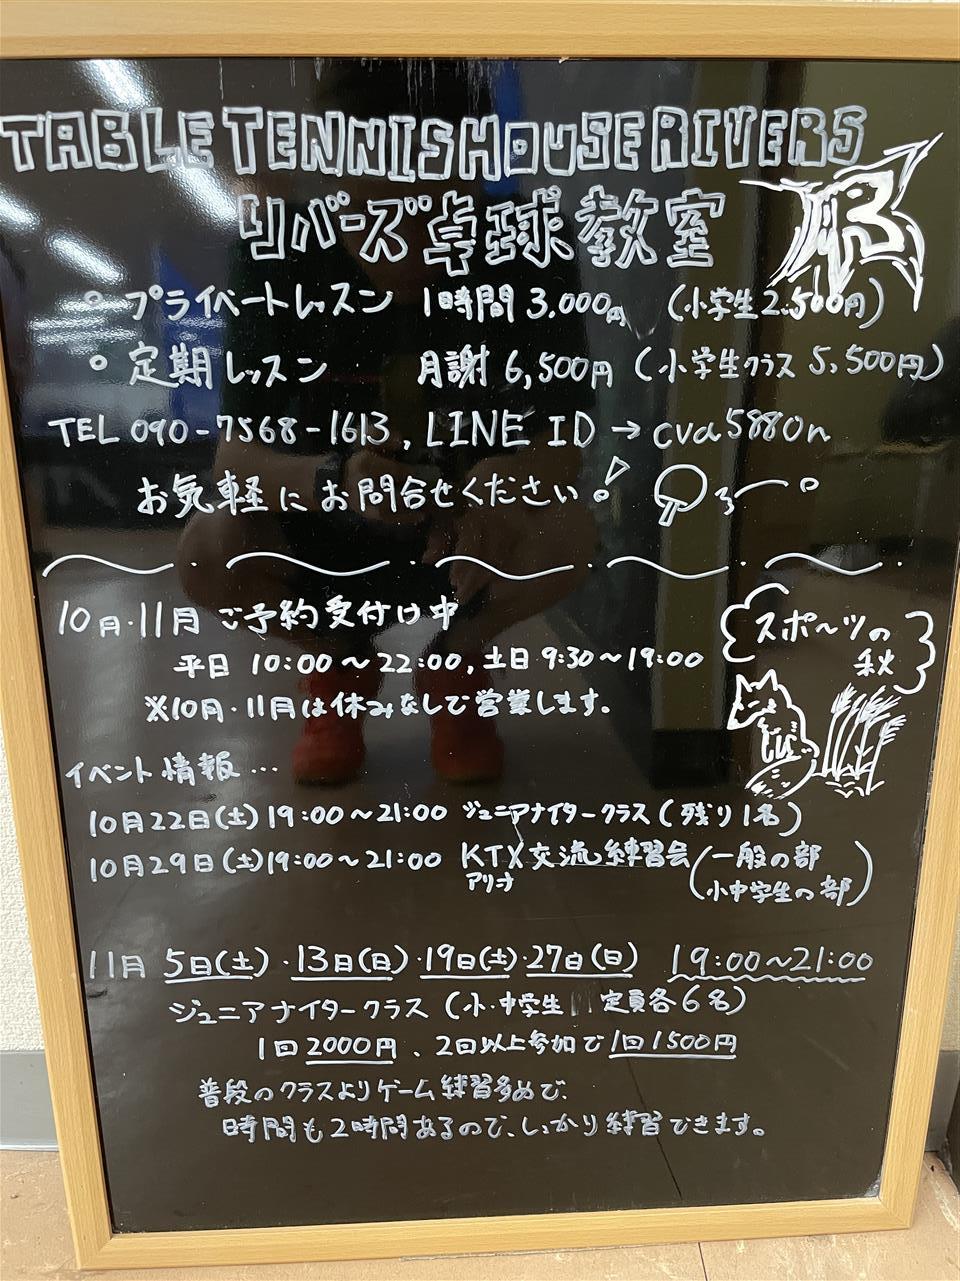 TABLE TENNIS HOUSE RIVERS
リバーズ卓球教室
プライベートレッスン 1時間 3.000円 (小学生2.500円)
定期レッスン 月謝 6,500円 (小学生クラス 5,500円)
TEL 090-7568-1613, LINE ID → cva5880n
お気軽にお問合せください!
10月・11月 ご予約受付け中
平日 10:00～22:00, 土日 9:30～19:00
※10月・11月は休みなしで営業します。
スポーツの
秋
イベント情報…
10月22日(土) 19:00～21:00 ジュニアナイタークラス(残り1名)
10月29日(土) 19:00～21:00 KTX交流練習会 (一般の部
アリーナ 小中学生の部)
11月 5日(土)・13日(日)・19日(土)・27日(日) 19:00～21:00
ジュニアナイタークラス (小・中学生 定員各6名)
1回 2000円、2回以上参加で1回1500円
普段のクラスよりゲーム練習多めで、
時間も2時間あるので、しっかり練習できます。